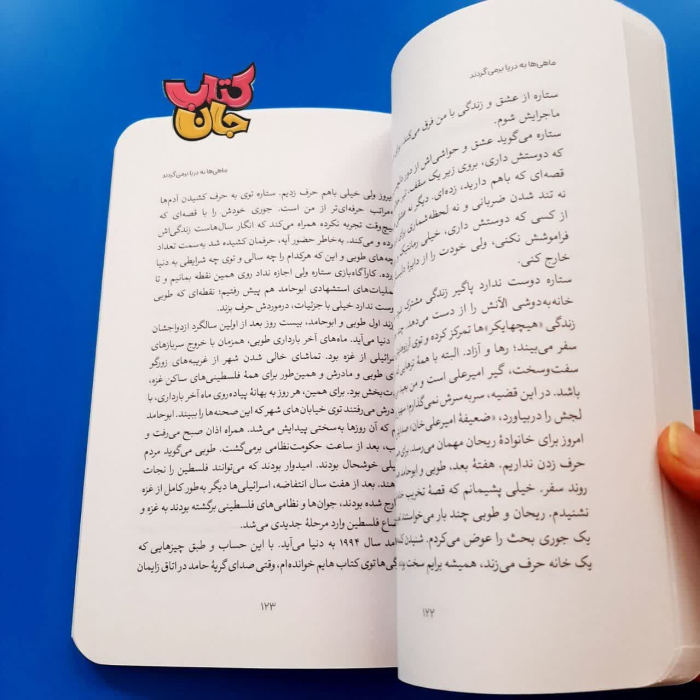 ماهی‌ها به دریا برمی‌گردند
ستاره از عشق و زندگی با من فرق می‌کند.
ماجرایش شوم.
ستاره می‌گوید عشق و حواشی‌اش از دور
که دوستش داری، بروی زیر یک سقف،
قصه‌ای که باهم دارید، زده‌ای. دیگر نه
نه تند شدن ضربانی و نه لحظه‌شماری برای
از کسی که دوستش داری، خیلی
فراموشش نکنی، ولی خودت را از دایرهٔ
خارج کنی.
ستاره دوست ندارد پاگیر زندگی مشترک
خانه‌به‌دوشی الآنش را از دست می‌دهد.
زندگی «هیچهایکر»ها تمرکز کرده و توی
سفر می‌بیند؛ رها و آزاد. البته با همهٔ
سفت‌وسخت، گیر امیرعلی است و من
باشد. در این قضیه، سربه‌سرش نمی‌گذارم؛
لجش را دربیاورد، «ضعیفهٔ امیرعلی‌خان»
امروز برای خانوادهٔ ریحان مهمان می‌رسد. برای
حرف زدن نداریم. هفتهٔ بعد، طوبی و ابوحامد
روند سفر. خیلی پشیمانم که قصهٔ تخریب
نشنیدم. ریحان و طوبی چند بار می‌خواستند
یک جوری بحث را عوض می‌کردم. شنیدن
یک خانه حرف می‌زند، همیشه برایم سخت
۱۲۲
کتاب
جان
ماهی‌ها به دریا برمی‌گردند
ولی خیلی باهم حرف زدیم. ستاره توی به حرف کشیدن آدم‌ها
حرفه‌ای‌تر از من است. جوری خودش را با قصه‌ای که
تجربه نکرده همراه می‌کند که انگار سال‌هاست زندگی‌اش
و می‌کند. به‌خاطر حضور آیه، حرفمان کشیده شد به‌سمت تعداد
طوبی و این که هرکدام را چه سالی و توی چه شرایطی به دنیا
کارآگاه‌بازی ستاره ولی اجازه نداد روی همین نقطه بمانیم و تا
استشهادی ابوحامد هم پیش رفتیم؛ نقطه‌ای که طوبی
ندارد خیلی با جزئیات، درموردش حرف بزند.
اول طوبی و ابوحامد، بیست روز بعد از اولین سالگرد ازدواجشان
دنیا می‌آید. ماه‌های آخر بارداری طوبی، همزمان با خروج سربازهای
از غزه بود. تماشای خالی شدن شهر از غریبه‌های زورگو
طوبی و مادرش و همین‌طور برای همهٔ فلسطینی‌های ساکن غزه،
بود. برای همین، هر روز به بهانهٔ پیاده‌روی ماه آخر بارداری، با
می‌رفتند توی خیابان‌های شهر که این صحنه‌ها را ببیند. ابوحامد
که آن روزها به‌سختی پیدایش می‌شد. همراه اذان صبح می‌رفت و
بعد از ساعت حکومت‌نظامی برمی‌گشت. طوبی می‌گوید مردم
خوشحال بودند. امیدوار بودند که می‌توانند فلسطین را نجات
بعد از هفت سال انتفاضه، اسرائیلی‌ها دیگر به‌طور کامل از غزه
شده بودند، جوان‌ها و نظامی‌های فلسطینی برگشته بودند به غزه و
فلسطین وارد مرحلهٔ جدیدی می‌شد.
سال ۱۹۹۴ به دنیا می‌آید. با این حساب و طبق چیزهایی که
توی کتاب هایم خوانده‌ام، وقتی صدای گریهٔ حامد در اتاق زایمان
۱۲۳